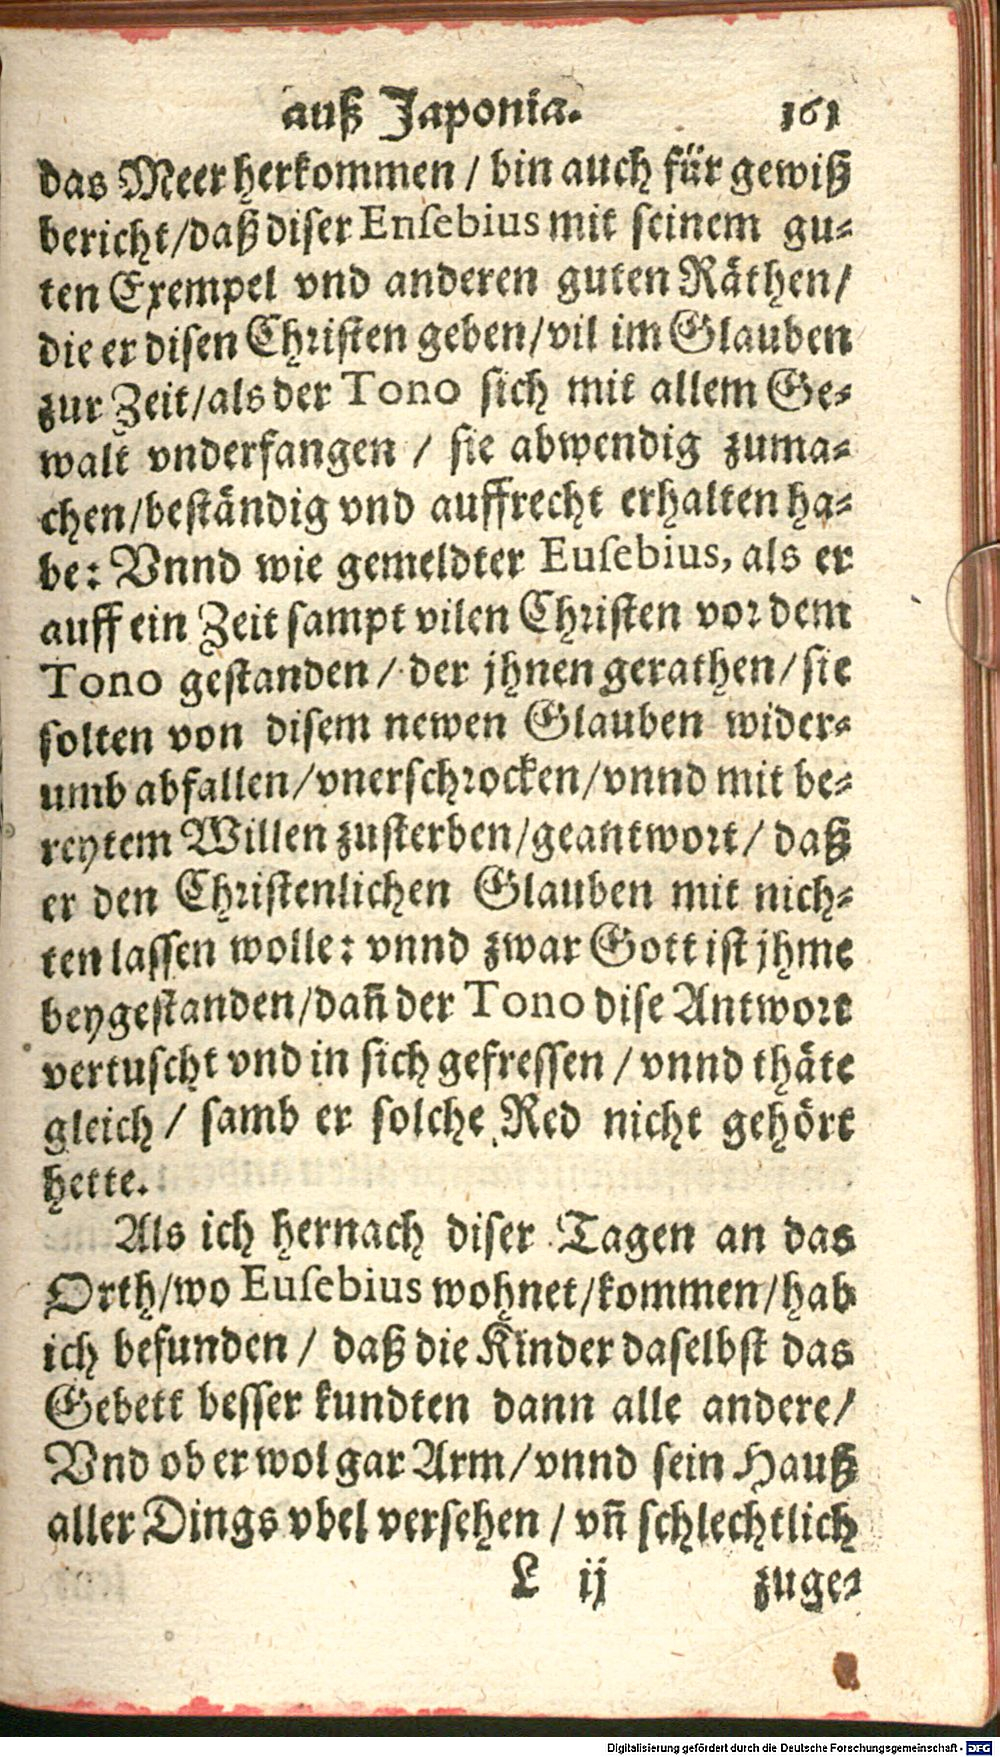 auß Japonia. 161
das Meer herkommen / bin auch für gewiß
bericht/daß diser Enſebius mit seinem gu-
ten Exempel vnd anderen guten Räthen/
die er disen Christen geben/vil im Glauben
zur Zeit/als der Tono sich mit allem Ge-
walt vnderfangen / sie abwendig zuma-
chen/beständig vnd auffrecht erhalten ha-
be: Vnnd wie gemeldter Euſebius, als er
auff ein Zeit sampt vilen Christen vor dem
Tono gestanden / der jhnen gerathen/sie
solten von disem newen Glauben wider-
umb abfallen/vnerschrocken/vnnd mit be-
reytem Willen zusterben/geantwort/ daß
er den Christenlichen Glauben mit nich-
ten lassen wolle: vnnd zwar Gott ist jhme
beygestanden/dañ der Tono dise Antwort
vertuscht vnd in sich gefressen / vnnd thäte
gleich / samb er solche Red nicht gehört
hette.
Als ich hernach diser Tagen an das
Orth/wo Euſebius wohnet/kommen/hab
ich befunden / daß die Kinder daselbst das
Gebett besser kundten dann alle andere/
Vnd ob er wol gar Arm/vnnd sein Hauß
aller Dings vbel versehen / vñ schlechtlich
L ij zuge-
Digitalisierung gefördert durch die Deutsche Forschungsgemeinschaft - DFG